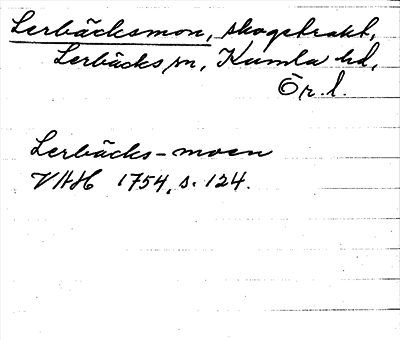 Lerbäcksmon, skogstrakt,
Lerbäcks sn, Kumla hd,
Ör. l.
Lerbäcks-moen
VAH 1754, s. 124.